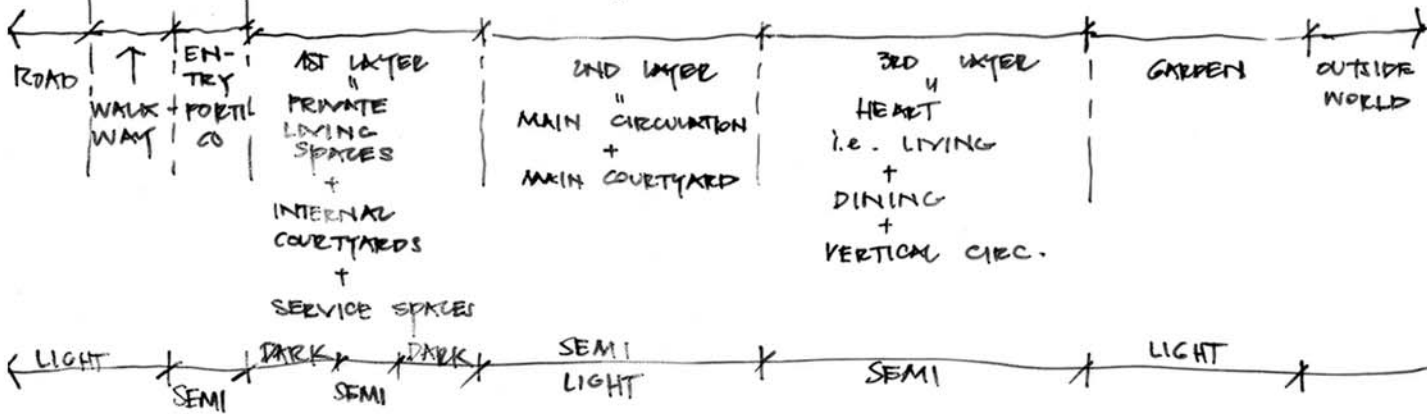 ROAD
↑
WALK
WAY
+
EN-
TRY
PORTI
CO
1ST LAYER
"
PRIVATE
LIVING
SPACES
+
INTERNAL
COURTYARDS
+
SERVICE SPACES
2ND LAYER
"
MAIN CIRCULATION
+
MAIN COURTYARD
3RD LAYER
"
HEART
i.e. LIVING
+
DINING
+
VERTICAL CIRC.
GARDEN
OUTSIDE
WORLD
LIGHT
SEMI
DARK
SEMI
DARK
SEMI
LIGHT
SEMI
LIGHT